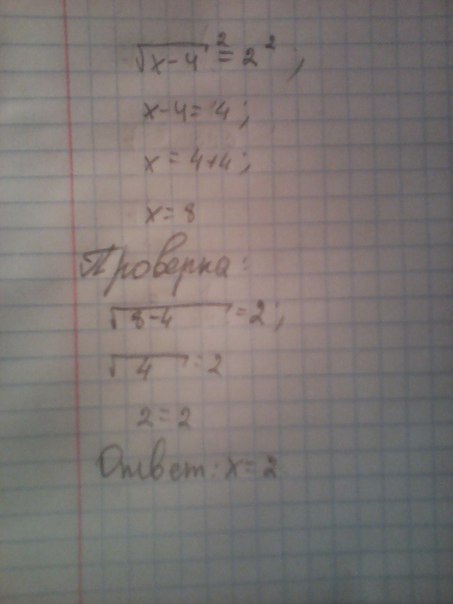 √x-4² = 2²;
x-4=4;
x=4+4;
x=8
Проверка:
√8-4=2;
√4=2
2=2
Ответ: x=2